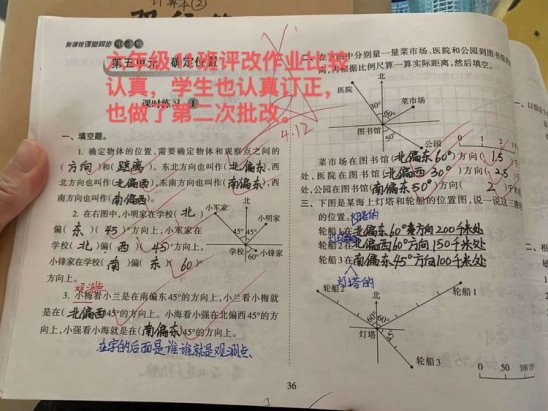 新课程课堂同步
第五单元 确定位置
六年级11班评改作业比较
认真，学生也认真订正，
也做了第二次批改。
课时练习 1
4.12
一、填空题。
1. 确定物体的位置，需要确定物体和观察点之间的
（方向）和（距离）。东北方向也叫作（北偏东），西
北方向也叫作（北偏西），东南方向也叫作（南偏东），西
南方向也叫作（南偏西）。
2. 在右图中，小明家在学校（北）
偏（东）（45°）方向上，小军家在
学校（北）偏（西）（45°）方向上，
小锋家在学校（南）偏（东）（60°）
方向上。
小军家
北
小明家
45°
45°
学校
60°
小锋家
观测点
3. 小梅看小兰是在南偏东45°的方向上，小兰看小梅就
是在（北偏西45°）的方向上。小海看小强在北偏西45°的方
向上，小强看小海就是在（南偏东45°）的方向上。
在字的后面是谁谁就是观测点
中分别量一量菜市场、医院和公园到图书馆的
离，再根据比例尺算一算实际距离，然后填空。
医院
北
菜市场
30°
60°
图书馆
50°
公园
0 1 2
菜市场在图书馆（北偏东60°）方向（1.5）
处，医院在图书馆（北偏西30°）方向（2.5
处，公园在图书馆（南偏东50°）方向（2
三、下图是某海上灯塔和轮船的位置图，说一说这三艘
的位置。
灯塔的
轮船1在北偏东60°方向200千米处
轮船2在北偏西60°方向150千米处
轮船3在南偏东45°方向100千米处
灯塔的
轮船2
北
轮船1
60°
60°
灯塔
45°
轮船3
0 50 100
36